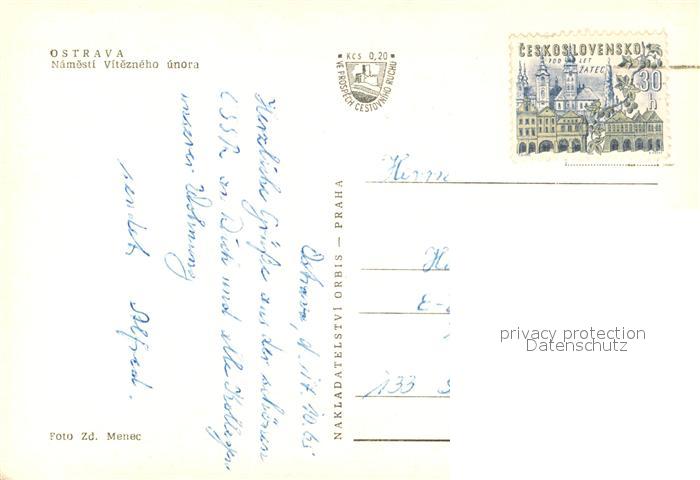 OSTRAVA
Náměstí Vítězného února
Kčs 0,20
VE PROSPĚCH CESTOVNÍHO RUCHU
ČESKOSLOVENSKO
700 LET
ŽATEC
30
h
Herrn
133
NAKLADATELSTVÍ ORBIS — PRAHA
Ostrava, d. 10.65
Herzliche Grüße aus der schönen
ČSSR an Dich und alle Kollegen
unserer
sendet Alfred.
Foto Zd. Menec
privacy protection
Datenschutz